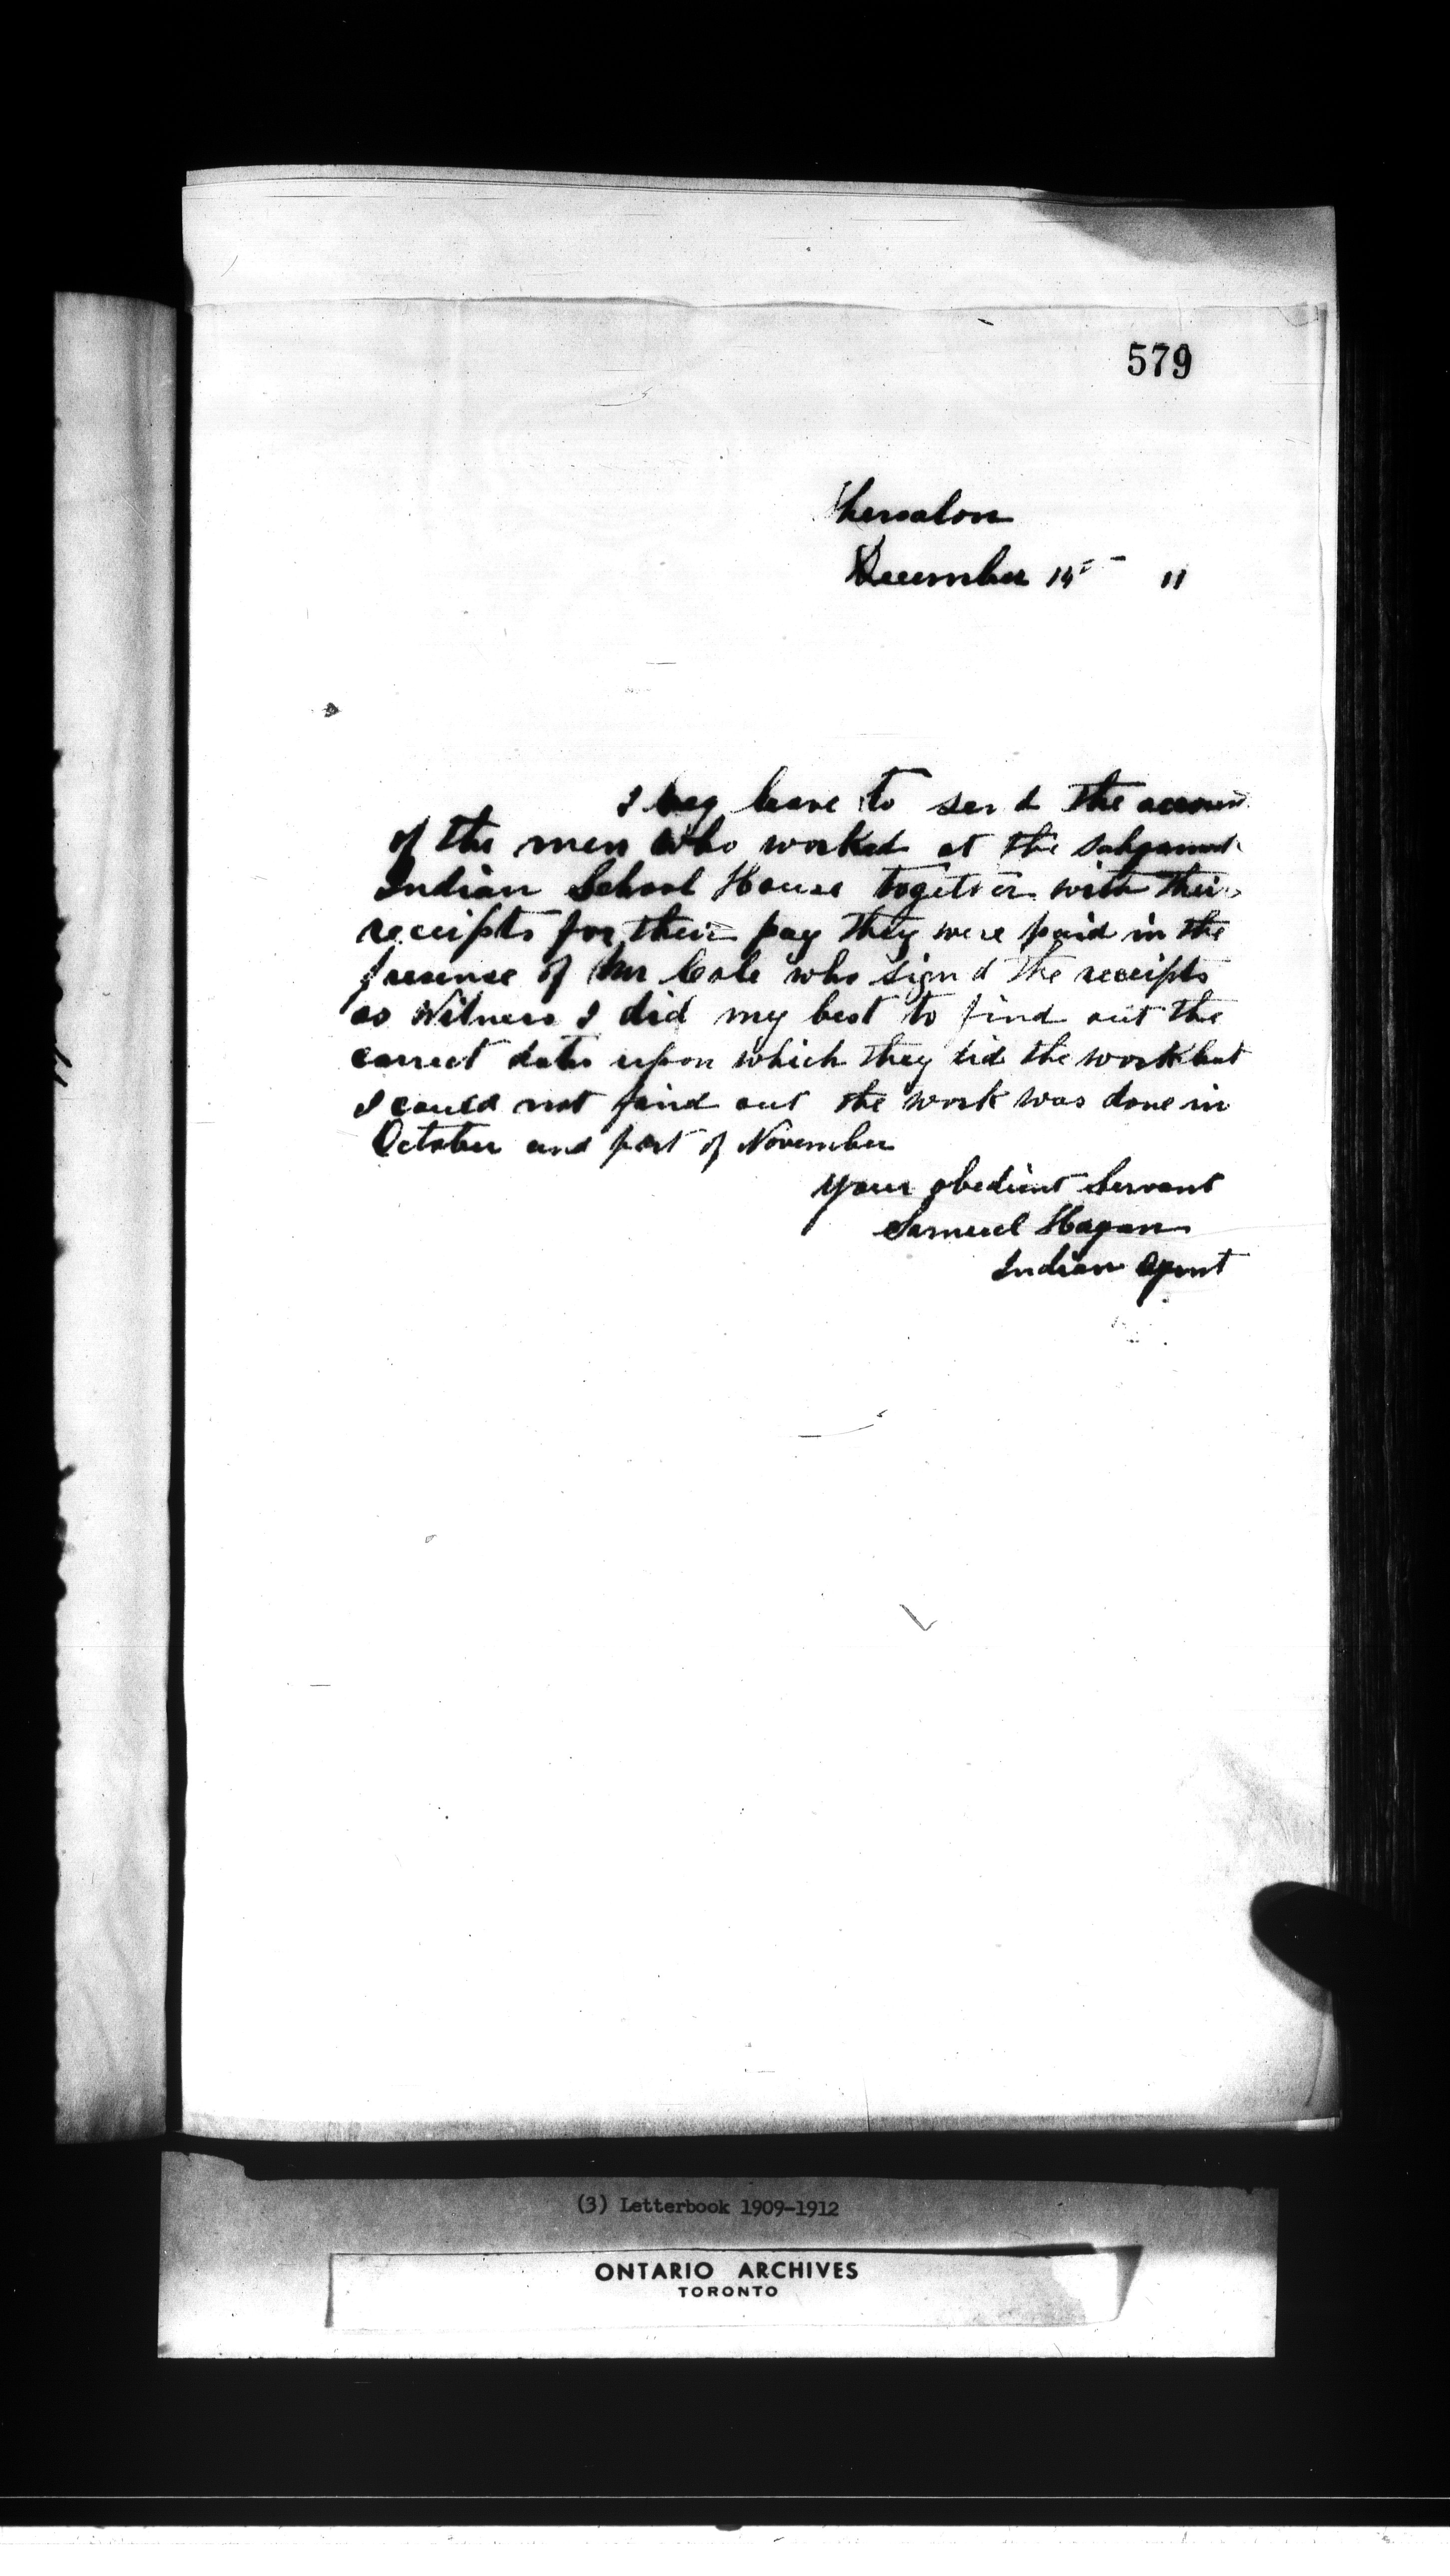 579
Thessalon
December 15 11
I beg leave to send the account
of the men who worked at the
Indian School House together with their
receipts for their pay they were paid in the
presence of Mr Cole who signd the receipts
as Witness I did my best to find out the
correct dates upon which they did the work but
I could not find out the work was done in
October and part of November
your obedient Servant
Samuel Hagan
Indian Agent
(3) Letterbook 1909-1912
ONTARIO ARCHIVES
TORONTO